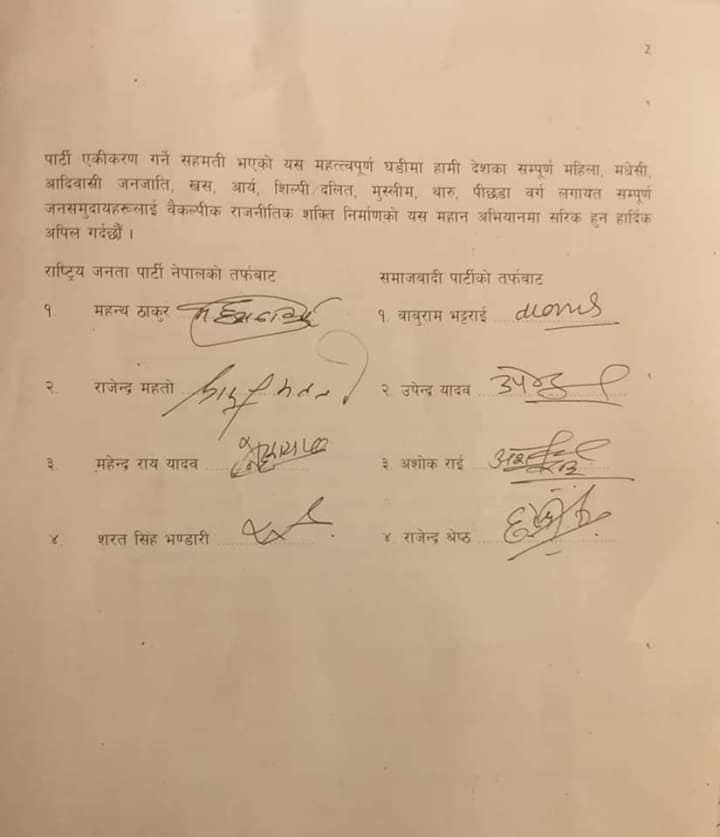 2
पार्टी एकीकरण गर्ने सहमती भएको यस महत्त्वपूर्ण घडीमा हामी देशका सम्पूर्ण महिला, मधेसी,
आदिवासी जनजाति, खस, आर्य, शिल्पी/दलित, मुस्लीम, थारु, पीछडा वर्ग लगायत सम्पूर्ण
जनसमुदायहरूलाई वैकल्पीक राजनीतिक शक्ति निर्माणको यस महान अभियानमा सरिक हुन हार्दिक
अपिल गर्दछौं ।
राष्ट्रिय जनता पार्टी नेपालको तर्फबाट
१. महन्थ ठाकुर
२. राजेन्द्र महतो
३. महेन्द्र राय यादव
४. शरत सिंह भण्डारी
समाजबादी पार्टीको तर्फबाट
१. बाबुराम भट्टराई
२ उपेन्द्र यादव
३ अशोक राई
४. राजेन्द्र श्रेष्ठ